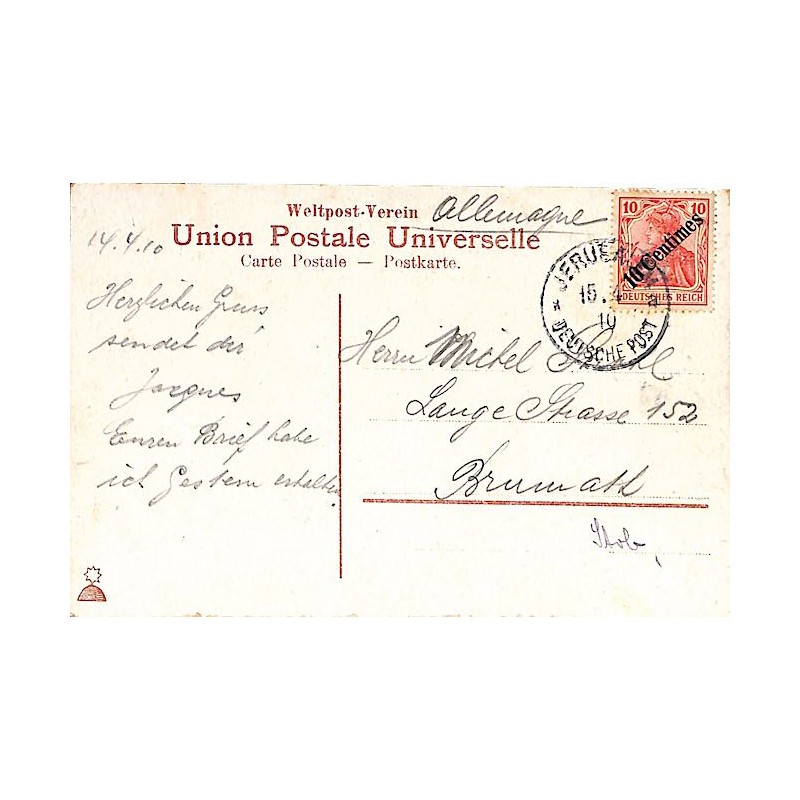 Weltpost-Verein Allemagne
Union Postale Universelle
Carte Postale — Postkarte.
14.4.10
Herzlichen Gruss
sendet der
Jacques
Euren Brief habe
ich Gestern erhalten
10 10
10 Centimes
DEUTSCHES REICH
JERUSALEM
15.4
10
DEUTSCHE POST
Herrn Michel
Lange Strasse 152
Brumath